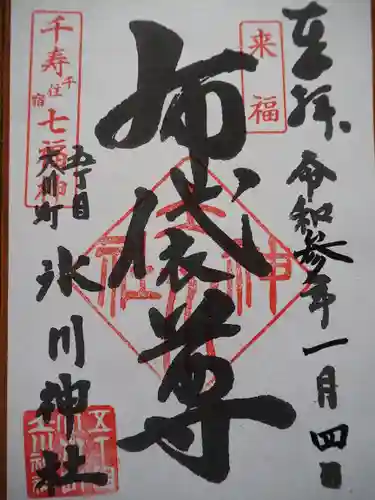 奉拝
令和参年一月四日
来福
布袋尊
千寿七福神
千住宿
五丁目
大川町
氷川神社